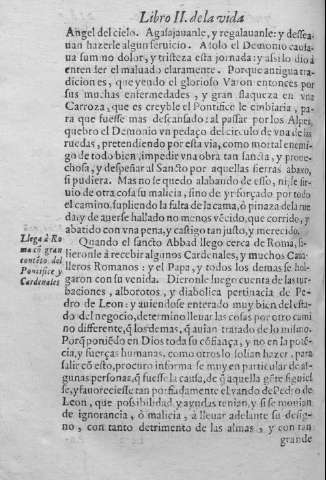 Libro II. de la vida
Angel del cielo. Agasajauanle, y regalauanle: y dessea-
uan hazerle algun seruicio. A solo el Demonio causa-
ua summo dolor, y tristeza esta jornada: y assi lo dio á
entender el maluado claramente. Porque antigua tra-
dicion es, que yendo el glorioso Varon entonces por
sus muchas enfermedades, y gran flaqueza en vna
Carroza, que es creyble el Pontifice le embiaria, pa-
ra que fuesse mas descansado: al passar por los Alpes
quebro el Demonio vn pedaço del circulo de vna de las
ruedas, pretendiendo por esta via, como mortal enemi-
go de todo bien, impedir vna obra tan sancta, y proue-
chosa, y despeñar al Sancto por aquellas sierras abaxo,
si pudiera. Mas no se quedo alabando de esso, ni se sir-
uio de otra cosa su malicia, sino de yr forçado por todo
el camino, supliendo la falta de la cama, ó pinaza de la rue
da: y de auerse hallado no menos vécido, que corrido, y
abatido con vna pena, y castigo tan justo, y merecido.
Llega á Ro
ma có gran
contéto del
Pontifice y
Cardenales
Quando el sancto Abbad llego cerca de Roma, sa-
lieronle á recebir algunos Cardenales, y muchos Caua-
lleros Romanos: y el Papa, y todos los demas se hol-
garon con su venida. Dieronle luego cuenta de las tur-
baciones, alborotos, y diabolica pertinacia de Pe-
dro de Leon: y auiendose enterado muy bien del esta-
do del negocio, determino lleuar las cosas por otro cami
no differente, q̃ los demas, q̃ auian tratado de lo mismo.
Porq̃ poniédo en Dios toda su cófiança, y no en la poté-
cia, y fuerças humanas, como otros lo solian hazer, para
salir có esto, procuro informarse muy en particular de al-
gunas personas, q̃ fuesse la causa, de q̃ aquella géte siguies
se, y fauoreciesse tan porfiadamente el vando de Pedro de
Leon, que possibilidad y ayudas tenian, y si se mouian
de ignorancia, ó malicia, á lleuar adelante su desig-
no, con tanto detrimento de las almas, y con tan
grande